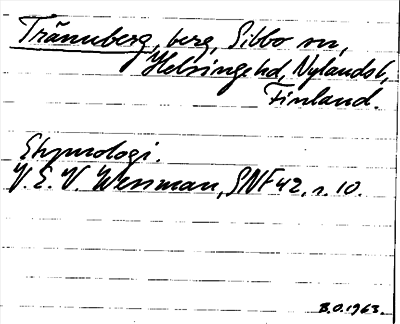 Trännberg, berg, Sibbo sn,
Helsinge hd, Nylands l,
Finland.
Etymologi.
V. E. V. Wessman, SNF 42, s. 10.
B.O. 1963.